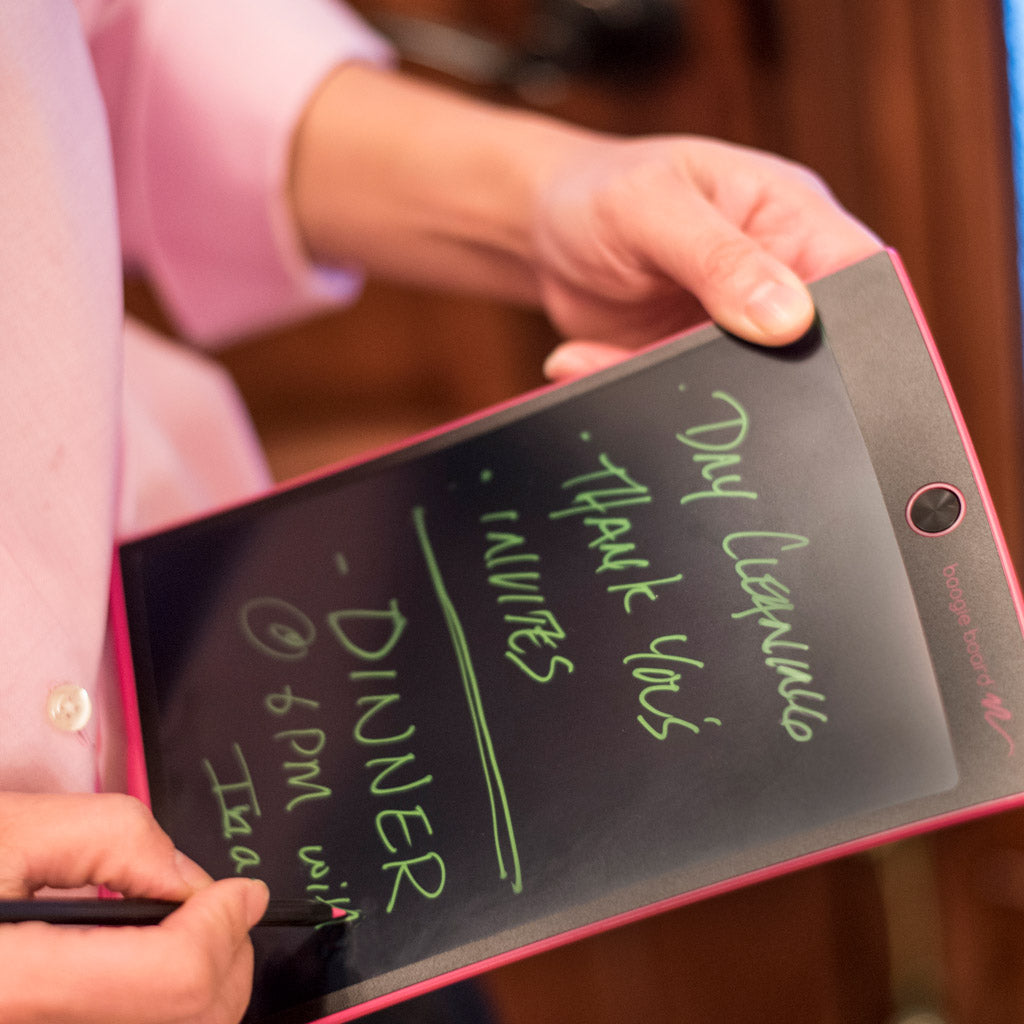 boogie board
· DRY CLEANING
· THANK YOU'S
· INVITES
- DINNER
@ 6PM with
Ina